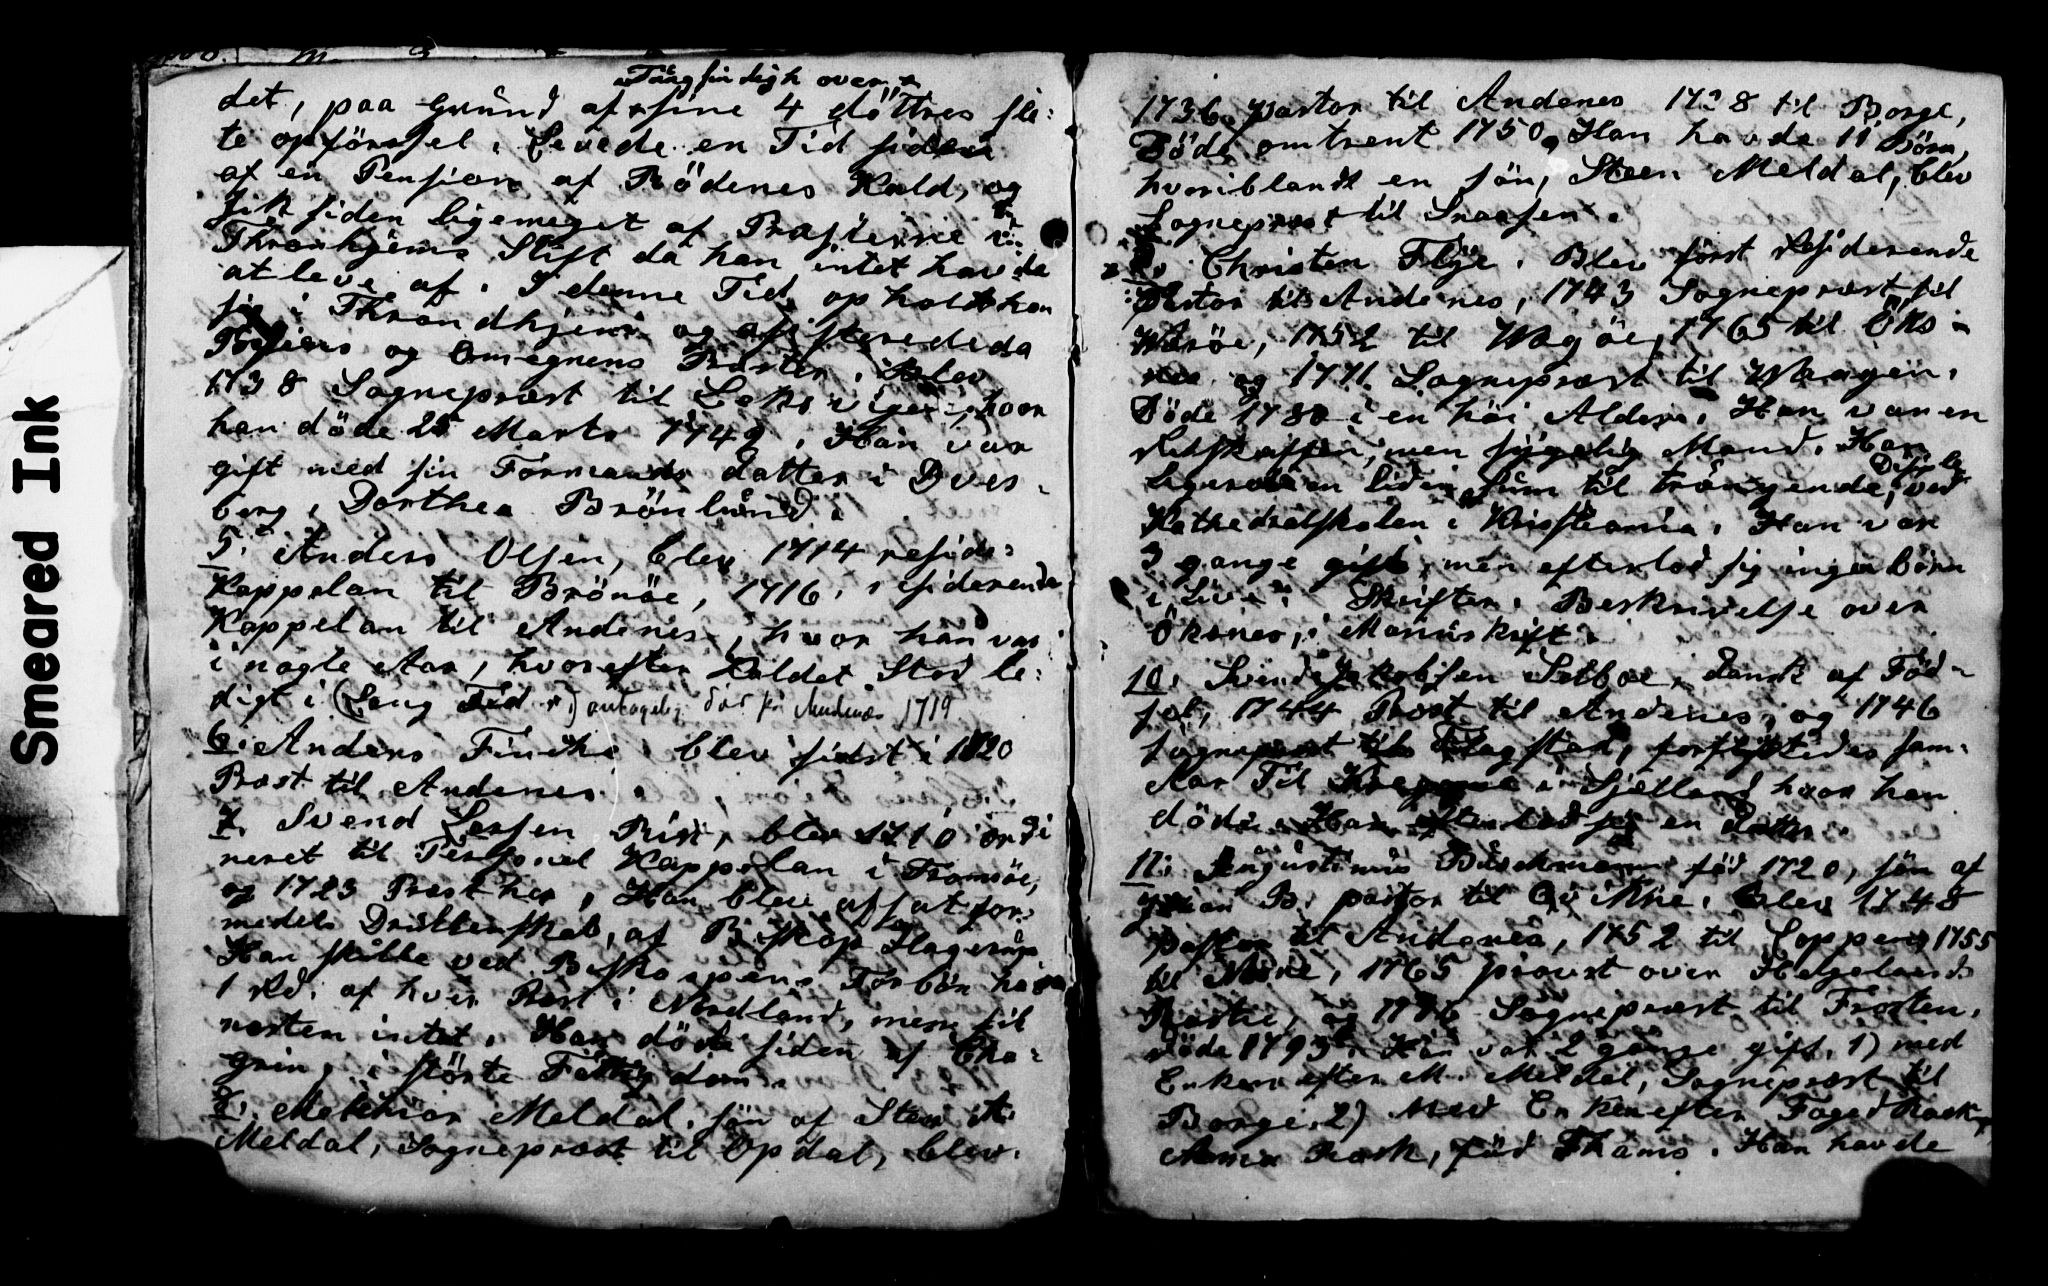 Smeared Ink
Tungsindigh over
det, paa Grund af sine 4 döttres sle-
te opförsel. Levede en Tid siden
af en Pension af Bödenes Kald, og
fik siden ligemeget af Præsterne i
Thronhjems Stift da han intet havde
at leve af. I denne Tid opholdt han
sig i Throndhjem og assisterede da
Byens og Omegnens Præster. Blev
1738 Sognepræst til Leksvigen, hvor
han döde 25 Marts 1749. Han var
gift med sin Formands datter i Bves-
berg, Dorthea Brönlund.
5. Anders Olsen, blev 1714 reside-
Kappelan til Brönöe, 1716, residerende
Kappelan til Andenes, hvor han var
i nogle Aar, hvorefter Kaldet Stod le-
digt i (Lang Tid) antagelig död på Andenes 1719
6. Anders Finche blev sidst i 1720
Præst til Andenes.
7. Svend Larsen Rist, blev 1710 ordi
neret til Personel Kappelan i Tromsöe,
og 1723 Præst her. Han blev afsat for-
medels Drukkenskab, af Biskop Hagerup
Han skulde ved Biskopens Forbön have
1 Rd. af hver Præst i Nordland, men fik
næsten intet. Han döde siden af Cha-
grin, i störste Fattigdom.
8. Melchior Meldal, sön af Sten A.
Meldal, Sognepræst til Opdal, blev
1736 Pastor til Andenes 1738 til Borge,
Döde omtrent 1750. Han havde 11 Börn,
hvoriblandt en sön, Steen Meldal, blev
Sognepræst til Snaasen.
9. Christen Flye. Blev först Residerende
Pastor til Andenes, 1743 Sognepræst til
Væröe, 1752 til Wagöe, 1765 til Öks-
nes og 1771 Sognepræst til Waagen.
Döde 1780 i en höi Alder. Han var en
retskaffen, men sygelig Mand. Han
legerede en liden Sum til trængende Disiple
ved
Kathedralskolen i Kristiania. Han var
3 gange gift, men efterlod sig ingen börn
i Live. Skrifter. Beskrivelse over
Öksnes, i Manuskrift.
10. Svend Jakobsen Selboe, dansk af Föd-
sel, 1744 Præst til Andenes, og 1746
sognepræst til Flagstad, forflyttedes sam-
Aar Til i Sjelland hvor han
döde. Han efterlod sig en datter.
11. Augustinus Buschmann föd 1720, sön af
B. pastor til Qvikne. Blev 1748
Pastor til Andenes, 1752 til Loppen, 1755
til Næröe, 1765 provst over Helgelands
Provstie, og 1776 Sognepræst til Frosten.
Döde 1793. Han var 2 gange gift, 1) med
Enken efter M. Meldal, Sognepræst til
Borge. 2) Med Enken efter Foged Rask,
Anna Rask, föd Thams. Han havde